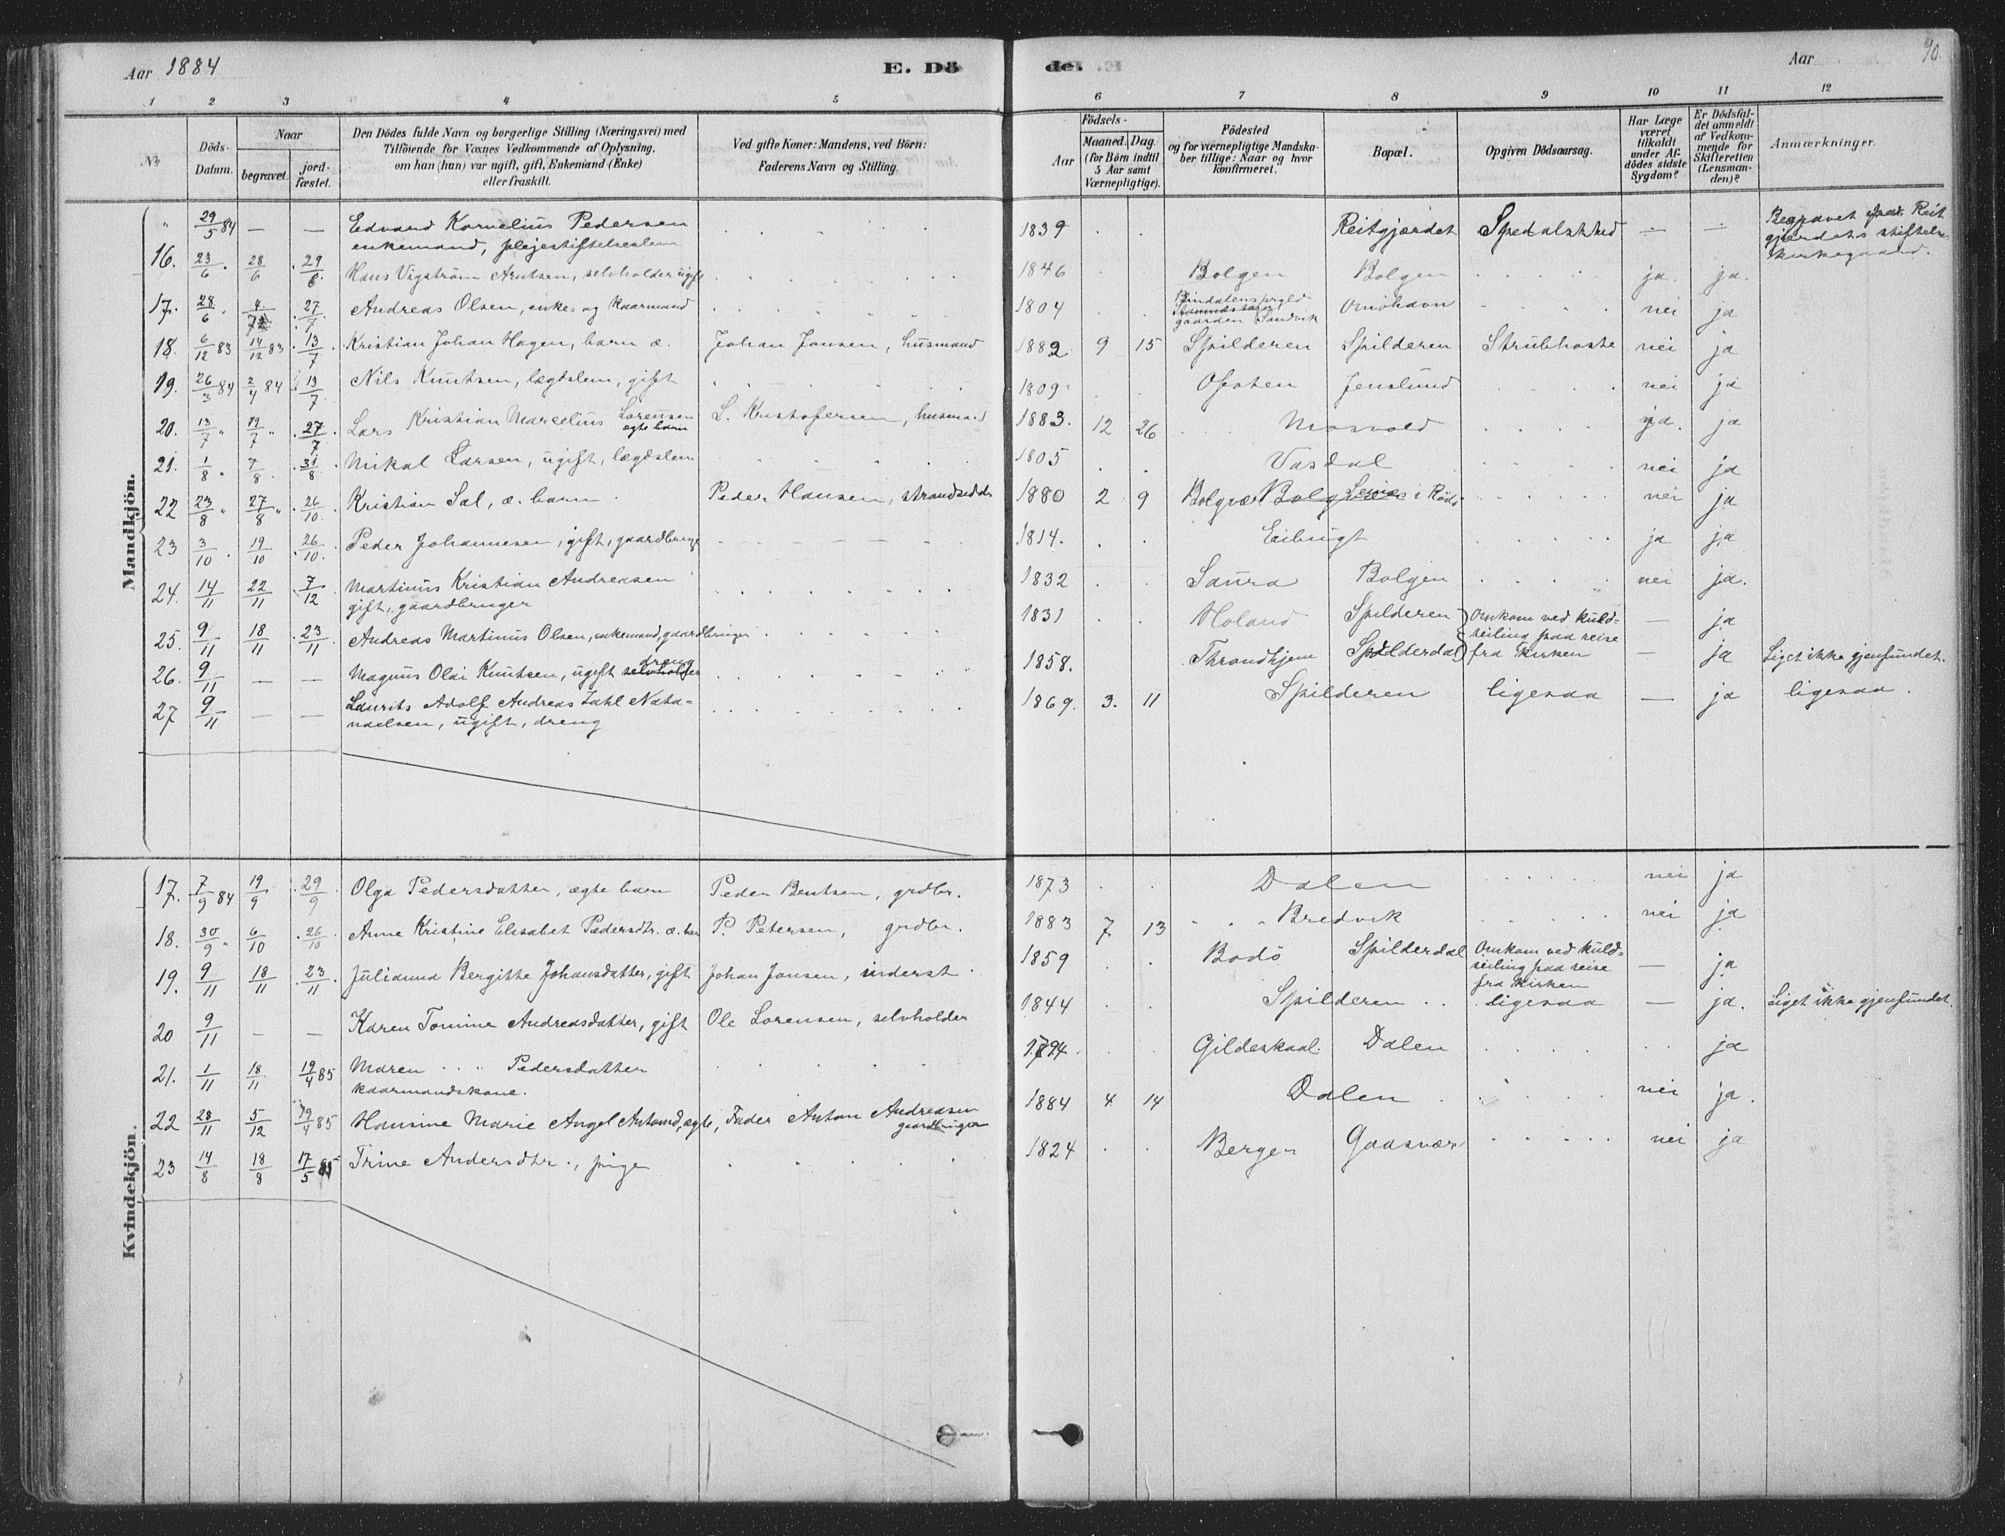 Aar 1884 E. Dö
de. Aar 90.
1 2 3 4 5 6 7 8 9 10 11 12
No
Döds-Datum.
Naar
begravet.
jord-fæstet.
Den Dödes fulde Navn og borgerlige Stilling (Næringsvei) med
Tilföiende for Voxnes Vedkommende af Oplysning,
om han (hun) var ugift, gift, Enkemand (Enke)
eller fraskilt.
Ved gifte Koner: Mandens, ved Börn:
Faderens Navn og Stilling.
Födsels-
Aar
Maaned. Dag.
(for Börn indtil
5 Aar samt
Værnepligtige).
Födested
og for værnepligtige Mandska-
ber tillige: Naar og hvor
konfirmeret.
Bopæl.
Opgiven Dödsaarsag.
Har Læge
været
tilkaldt
under Af-
dödes sidste
Sygdom?
Er Dödsfal-
det anmeldt
af Vedkom-
mende for
Skifteretten
(Lensman-
den)?
Anmærkninger.
Mandkjön.
" 29/5 84 — — Edvard Kornelius Pedersen
enkemand, plejestiftelseslem 1839 Reitgjærdet Spedalskhed — — Begravet paa Reit
gjerdets stiftelses
kirkegaard.
16. 23/6 28/6 29/6 Hans Vigström Arntsen, selvholder ugift 1846 Bolgen Bolgen ja ja.
17. 28/6 4/7 27/7 Andreas Olsen, enke- og kaarmand 1804 Bindalens prgld
gaarden Sandvik Omöhavn nei ja
18. 6/12 83 14/12 83 13/7 Kristian Johan Hagen, barn æ. Johan Jonsen, husmand 1882 9 15 Spilderen Spilderen Strubhoste nei ja
19. 26/3 84 2/4 84 13/7 Nils Knutsen, lægdslem, gift 1809 Ofoten Jenslund nei ja
20. 13/7 " 19/7 " 27/7 Lars Kristian Marcelius Lorensen
egte barn L. Kristofersen, husmand 1883. 12 26 Mosvold ja. ja
21. 1/8 " 7/8 31/8 Mikal Larsen, ugift, lægdslem 1805 Vasdal nei ja
22 23/8 " 27/8 " 26/10 Kristian Sal, æ. barn Peder Hansen, strandsidder 1880 2 9 Bolgvær i Rödö nei ja
23 3/10 19/10 26/10 Peder Johannesen, gift, gaardbruger 1814. Eibugt ja ja
24. 14/11 22/11 7/12 Martinus Kristian Andreasen
gift, gaardbruger 1832 Saura Bolgen nei ja.
25. 9/11 18/11 23/11 Andreas Martinus Olsen, enkemand, gaardbruger 1831 Holand Spilderen Omkom ved kuld-
seiling paa reise
fra kirken — ja
26. 9/11 — — Magnus Olai Knutsen, ugift selvholder
dreng 1858. Throndhjem Spilderdal — ja Liget ikke gjenfundet.
27 9/11 — — Laurits Adolf Andreas Zahl Nata-
naelsen, ugift, dreng 1869. 3. 11 Spilderen ligesaa — ja ligesaa.
Kvindekjön.
17. 7/9 84 19/9 29/9 Olga Pedersdatter, ægte barn Peder Bentsen, grdbr. 1873 Dalen nei ja
18. 30/9 " 6/10 26/10 Anne Kristine Elisabet Pedersdtr. æ. barn P. Petersen, grdbr. 1883 7 13 Bredvik nei ja
19. 9/11 18/11 23/11 Julianna Bergitte Johansdatter, gift Johan Jonsen, inderst 1859 Bodö Spilderdal Omkom ved kuld-
seiling paa reise
fra kirken — ja
20 9/11 — — Karen Tomine Andreasdatter, gift Ole Lorensen, selvholder 1844 Spilderen ligesaa — ja. Liget ikke gjenfundet.
21. 1/11 18/11 19/4 85 Maren Pedersdatter
kaarmandskone. 1794. Gildeskaal Dalen ja
22 28/11 5/12 19/4 85 Hansine Marie Angel Antond, egte, Fader Anton Andreasen
gaardbruger 1884 4 14 Dalen nei ja.
23 14/8 18/8 17/5 85 Trine Andersdtr., pige 1824 Bergen Gaasvær nei ja